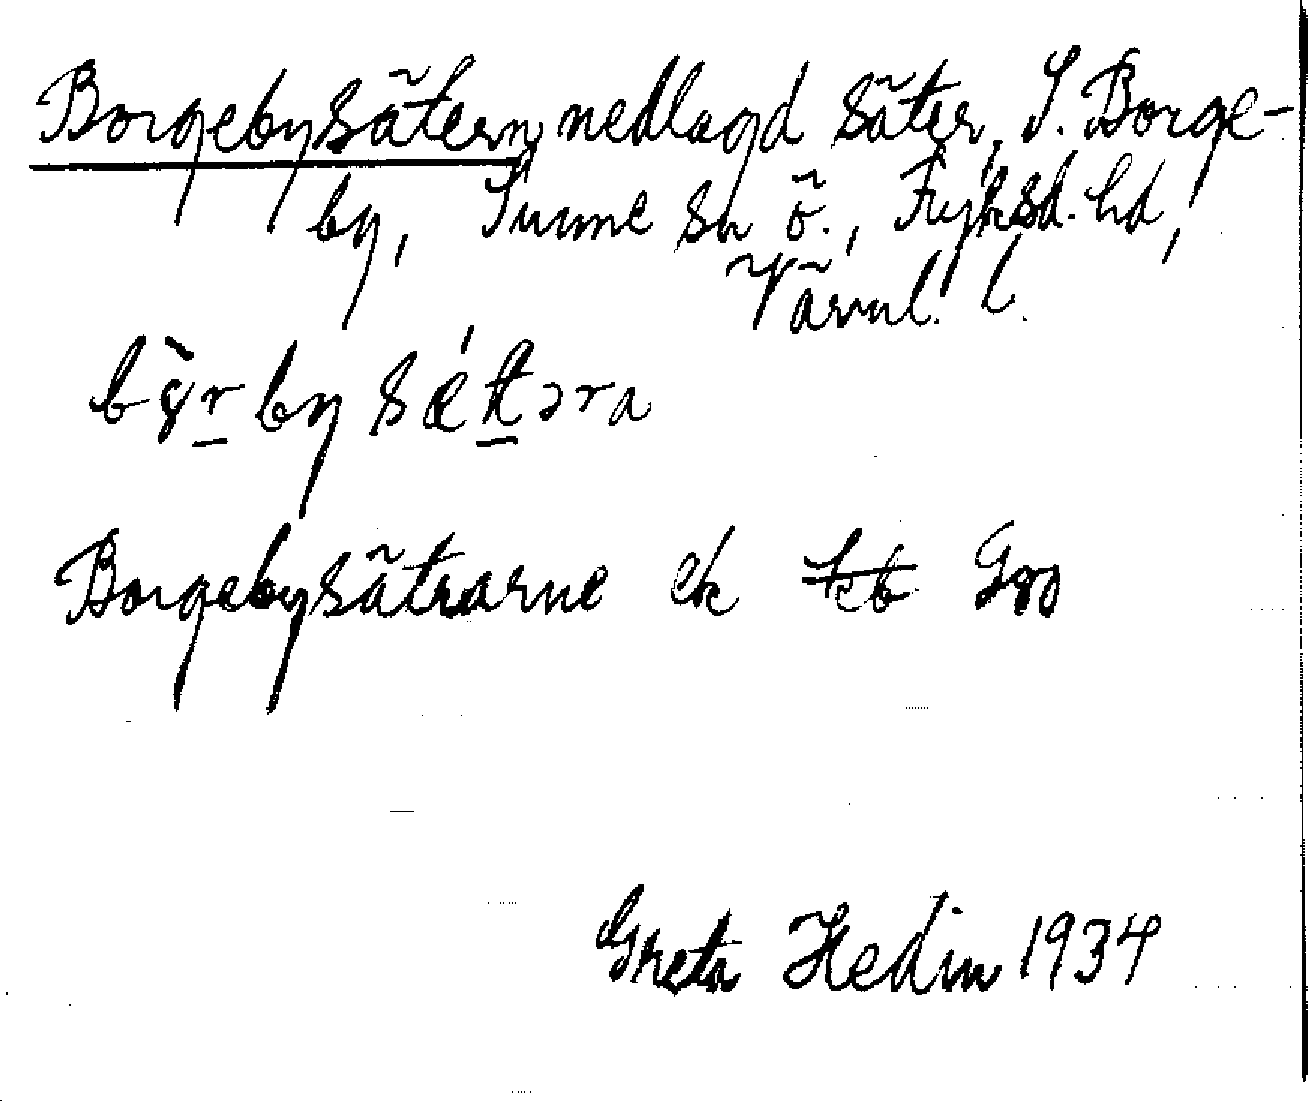 Borgebysätern, nedlagd säter, S. Borge-
by, Sunne sn ö., Fryksd. hd,
Värml. l.
Borgebysätrarne ek
Greta Hedin 1934